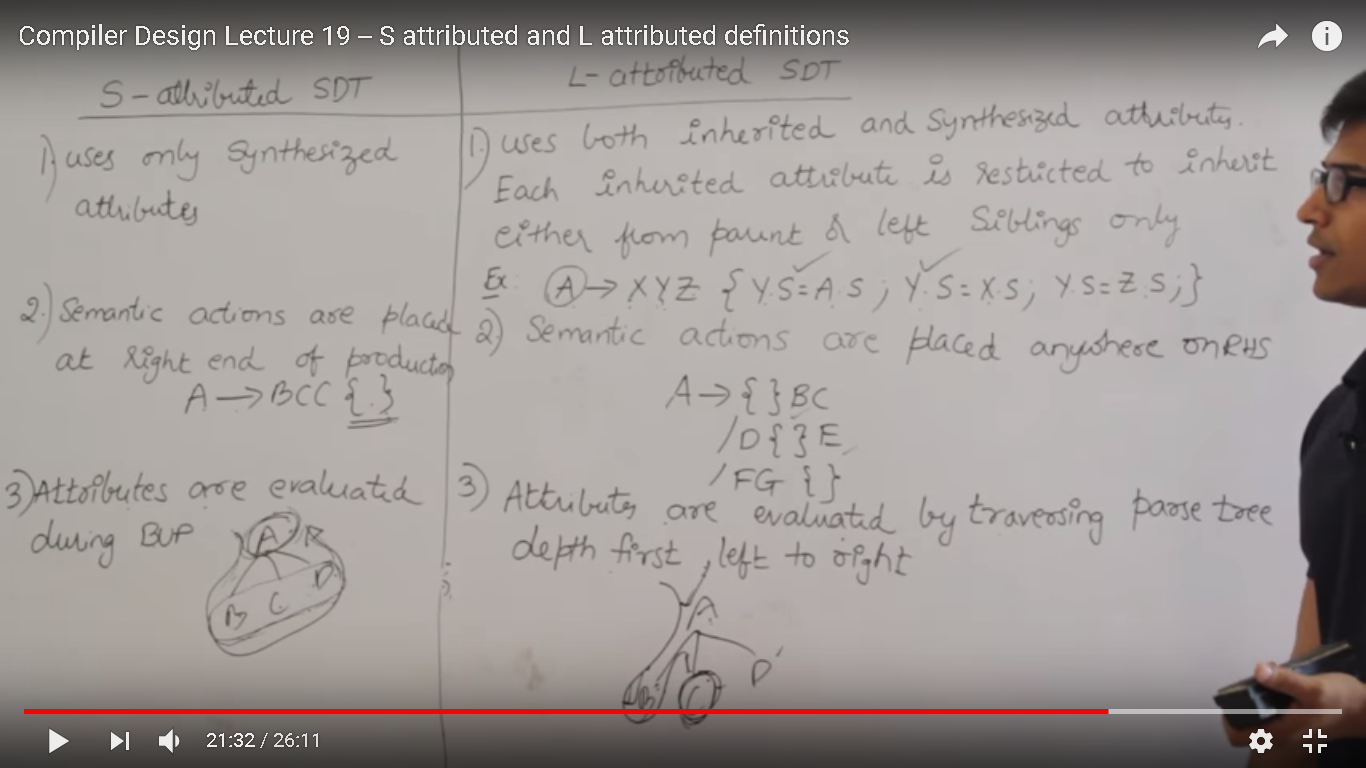 Compiler Design Lecture 19 – S attributed and L attributed definitions
S-attributed SDT
1) uses only Synthesized
attributes
2.) Semantic actions are placed
at Right end of production
A → BCC {.}
3) Attributes are evaluated
during BUP
A
B C D
L-attributed SDT
1.) uses both inherited and Synthesized attributes.
Each inherited attribute is restricted to inherit
either from parent or left Siblings only
Ex: A → XYZ { Y.S = A.S ; Y.S = X.S ; Y.S = Z.S ; }
2) Semantic actions are placed anywhere on RHS
A → { } BC
/ D { } E
/ FG { }
3) Attributes are evaluated by traversing parse tree
depth first, left to right
A
B C D
21:32 / 26:11